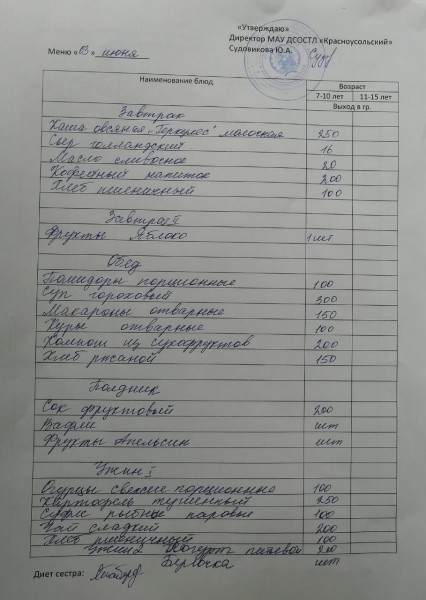 «Утверждаю»
Директор МАУ ДСОСТЛ «Красноусольский»
Меню «13» июня Судовикова Ю.А.
Наименование блюд Возраст
7-10 лет 11-15 лет
Выход в гр.
Завтрак
Каша овсяная "Геркулес" молочная 250
Сыр голландский 16
Масло сливочное 20
Кофейный напиток 200
Хлеб пшеничный 100
Завтрак II
Фрукты Яблоко 1 шт
Обед
Помидоры порционные 100
Суп гороховый 300
Макароны отварные 150
Куры отварные 100
Компот из сухофруктов 200
Хлеб ржаной 150
Полдник
Сок фруктовый 200
Вафли шт
Фрукты Апельсин шт
Ужин I
Огурцы свежие порционные 100
Картофель тушенный 250
Суфле рыбные паровые 100
Чай сладкий 200
Хлеб пшеничный 100
Ужин 2 Йогурт питьевой 200
шт
Диет сестра: